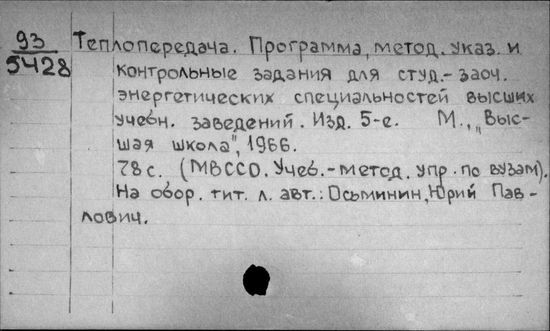 93
5428
Теплопередача. Программа, метод. указ. и
контрольные задания для студ.-заоч.
энергетических специальностей высших
учебн. заведений. Изд. 5-е. М., „Выс-
шая школа", 1966.
78 с. (МВССО. Учеб.-метод. упр. по вузам).
На обор. тит. л. авт.: Осьминин, Юрий Пав-
лович.